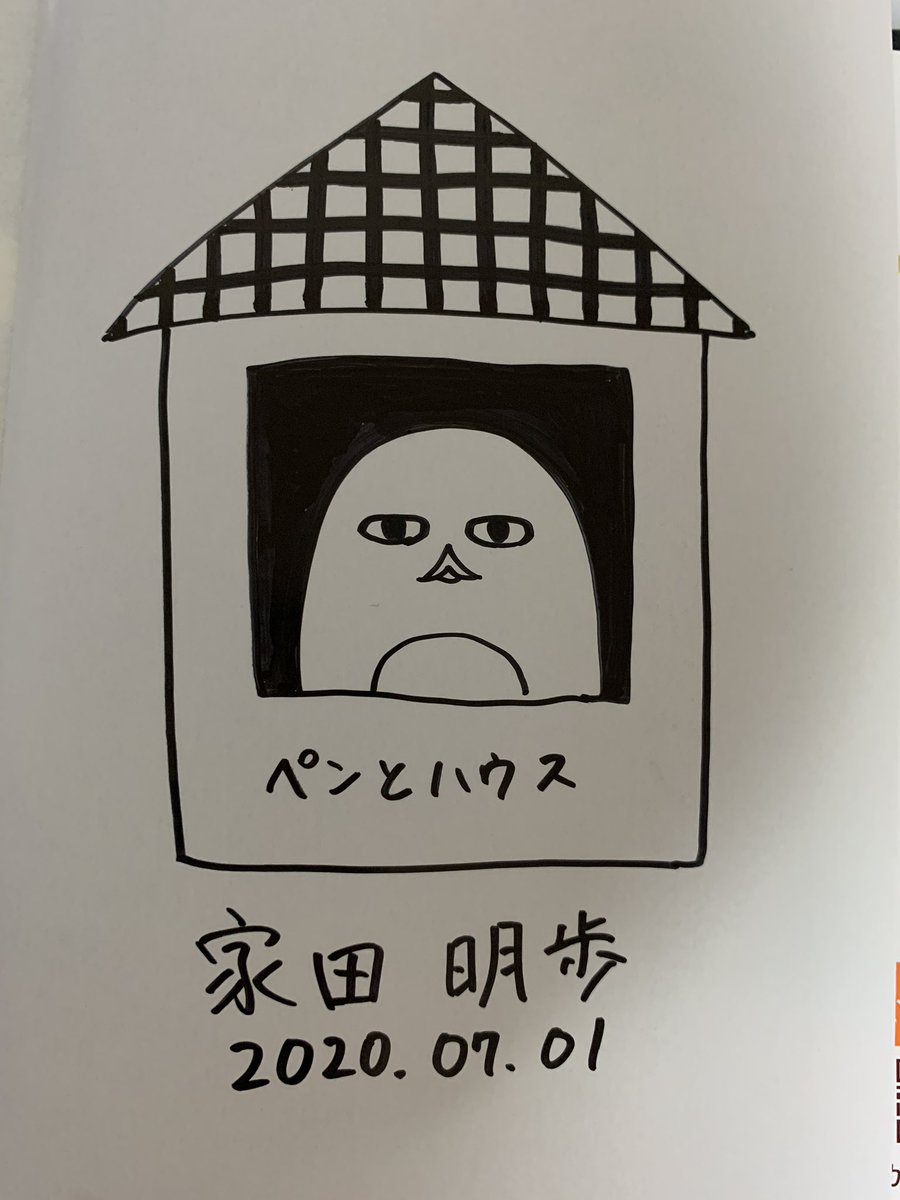 ペンとハウス
家田 明歩
2020.07.01